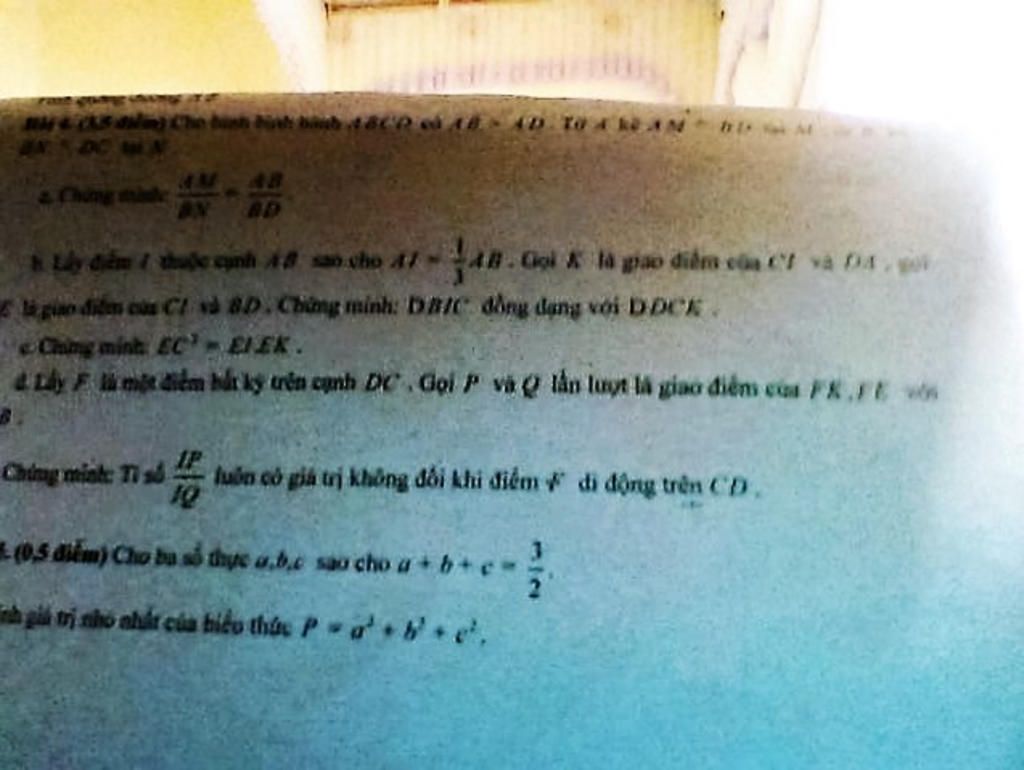 Bài 4. (3,5 điểm) Cho hình bình hành ABCD có AB > AD. Từ A kẻ AM
BN ^ DC tại N
a. Chứng minh: AM/BN = AB/BD
b. Lấy điểm I thuộc cạnh AB sao cho AI = 1/3 AB. Gọi K là giao điểm của CI và DA, gọi
E là giao điểm của CI và BD. Chứng minh: DBIC đồng dạng với DDCK.
c. Chứng minh: EC² = EI.EK.
d. Lấy F là một điểm bất kỳ trên cạnh DC. Gọi P và Q lần lượt là giao điểm của FK, FE với
B.
Chứng minh: Tỉ số IP/IQ luôn có giá trị không đổi khi điểm F di động trên CD.
(0,5 điểm) Cho ba số thực a,b,c sao cho a + b + c = 3/2.
giá trị nhỏ nhất của biểu thức P = a² + b² + c².